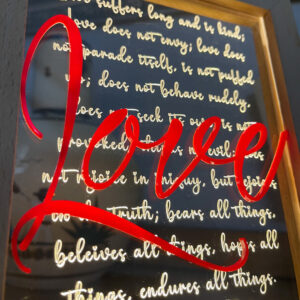 suffers long and is kind;
love does not envy; love does
not parade itself, is not puffed
up; does not behave rudely,
does not seek its own, is not
provoked, no evil; does
not rejoice in iniquity, but rejoices
in the truth; bears all things,
beleives all things, hopes all
things, endures all things.
Love